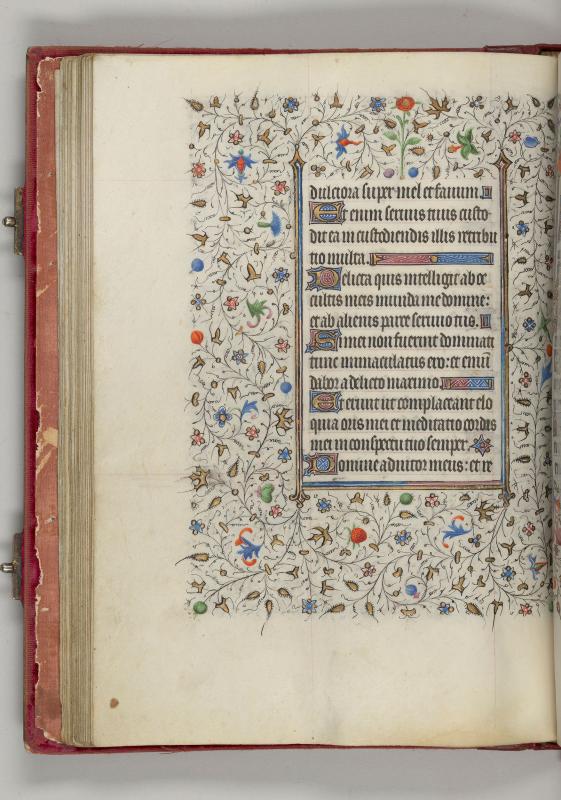 dulciora super mel et fauum.
Et enim seruus tuus custo
dit ea in custodiendis illis retribu
tio multa.
Delicta quis intelligit ab oc
cultis meis munda me domine:
et ab alienis parce seruo tuo.
Si mei non fuerint dominati
tunc immaculatus ero: et emū
dabor a delicto maximo.
Et erunt ut complaceant elo
quia oris mei et meditatio cordis
mei in conspectu tuo semper.
Domine adiutor meus: et re